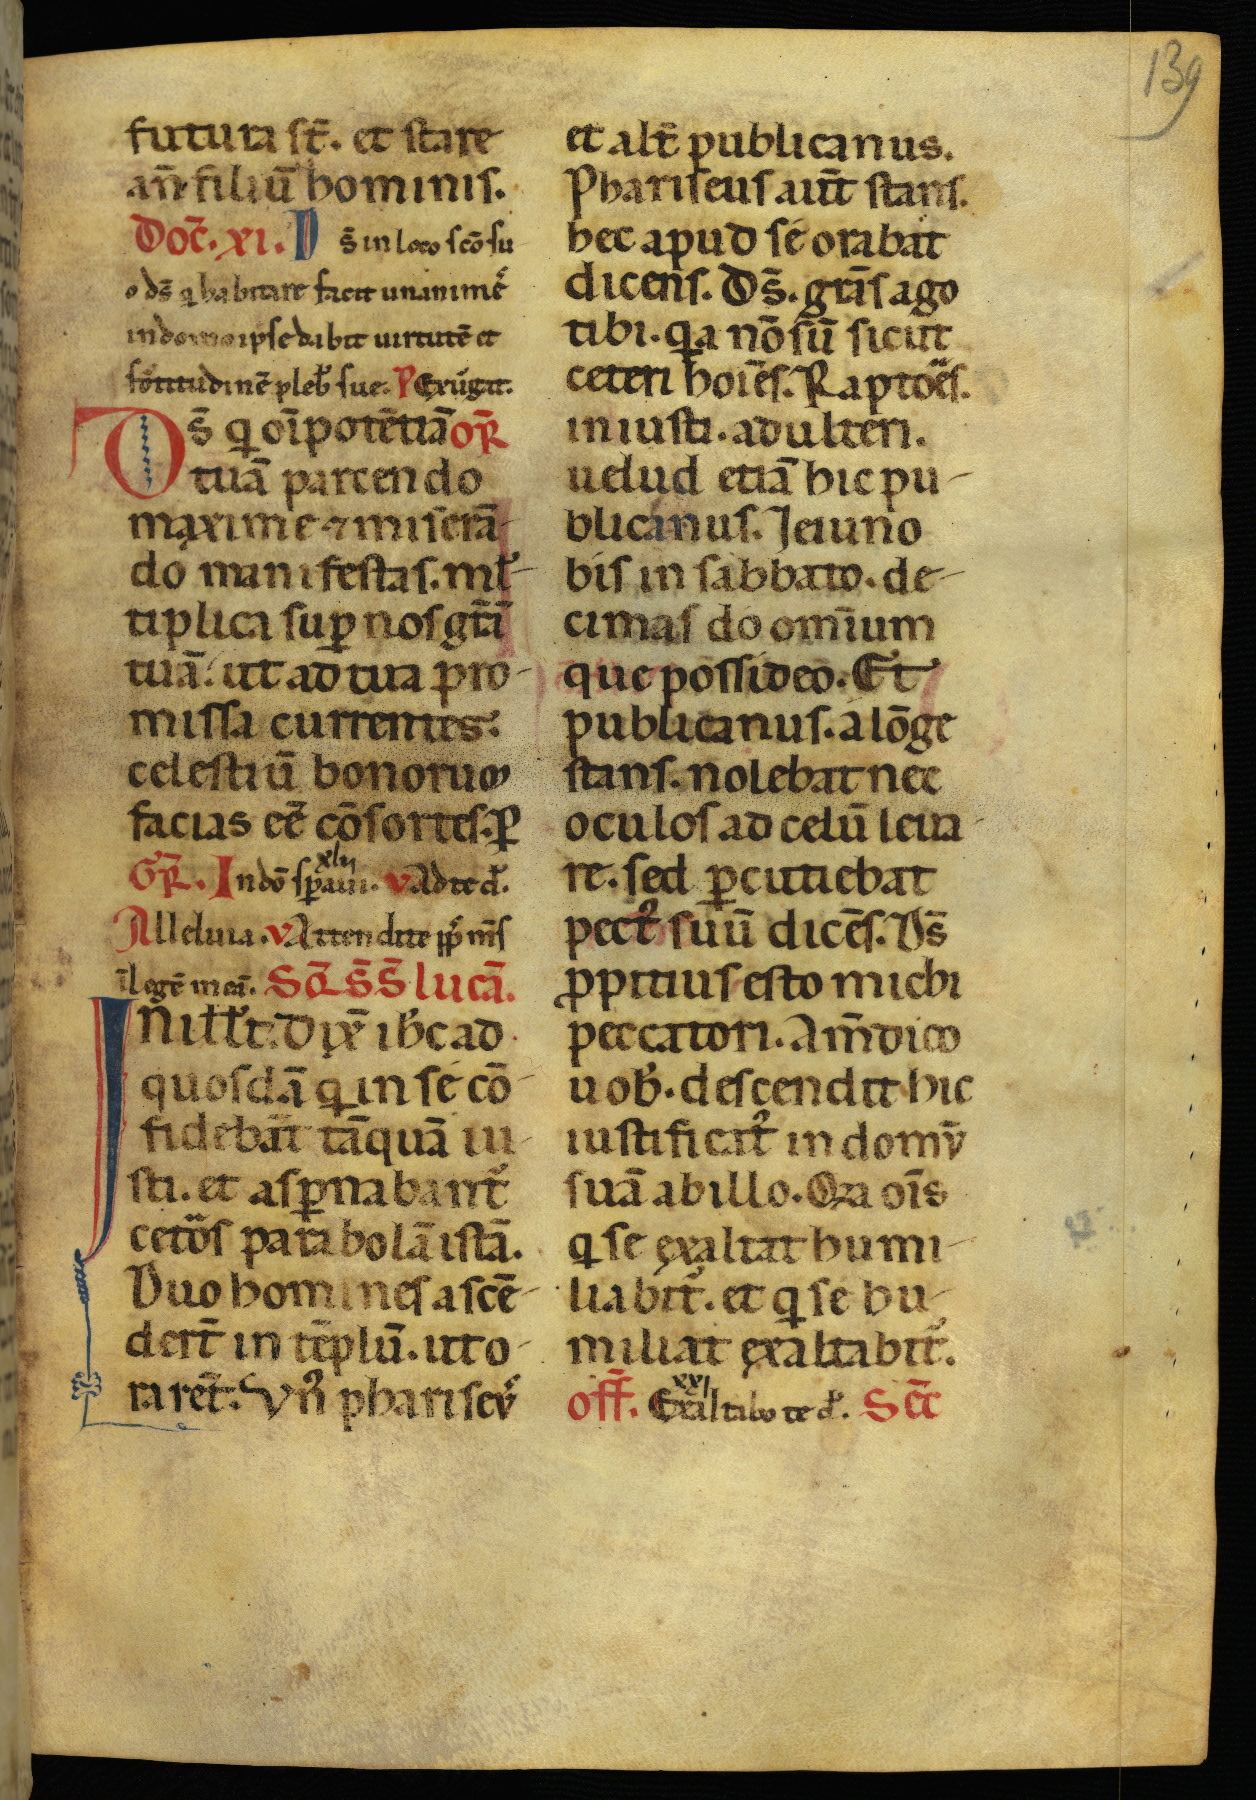 139
futura st̄. et stare
an̄ filiū hominis.
Doc̄. xi. D s̄ in loco scō su
o ds̄ q habitare facit unanimẽ
in domo ipse dabit uirtutē et
fortitudinē pleb̾ sue. P Exurgat.
D s̄ q oīpotētiā or̄
tuā parcendo
maxime ⁊ miserā-
do manifestas. ml̾-
tiplica suꝑ nos gr̄ā
tuā. ut ad tua pro-
missa currentes.
celestiū bonorum
facias eē cōsortes. ꝑ
Gr̄. In dō sꝑaui. xlii v Ad te d̾.
Alleluia. v Attendite ppl̾ m̄s
ī legē meā. Sq̄ s̄ s̄ lucā.
In illꝉ t̄. Dix̄ ih̄c ad
quosdā q in se cō-
fidebāt tāquā iu-
sti. et asꝑnabant᷑
cetōs parabolā istā.
Duo homines ascē-
dert̄ in tēplū. ut o-
raret̄. Vn᷒ phariseus
et alt̄ publicanus.
Phariseus aut̄ stans.
hec apud se orabat
dicens. Ds̄. gr̄as ago
tibi. qa nō sū sicut
ceteri hoīes. Raptōes.
iniusti. adulteri.
uelud etiā hic pu-
blicanus. Jeiuno
bis in sabbato. de-
cimas do omīum
que possideo. Et
publicanus. a lōge
stans. nolebat nec
oculos ad celū leua-
re. sed ꝑcutiebat
pect᷒ suū dicēs. Ds̄
ꝓpitius esto michi
peccatori. Am̄ dico
uob̾. descendit hic
iustificat᷒ in domū
suā ab illo. Qia oīs
q se exaltat humi-
liabit᷑. et q se hu-
miliat exaltabit᷑.
off̄. Exaltabo te d̾. xxi Sec̄